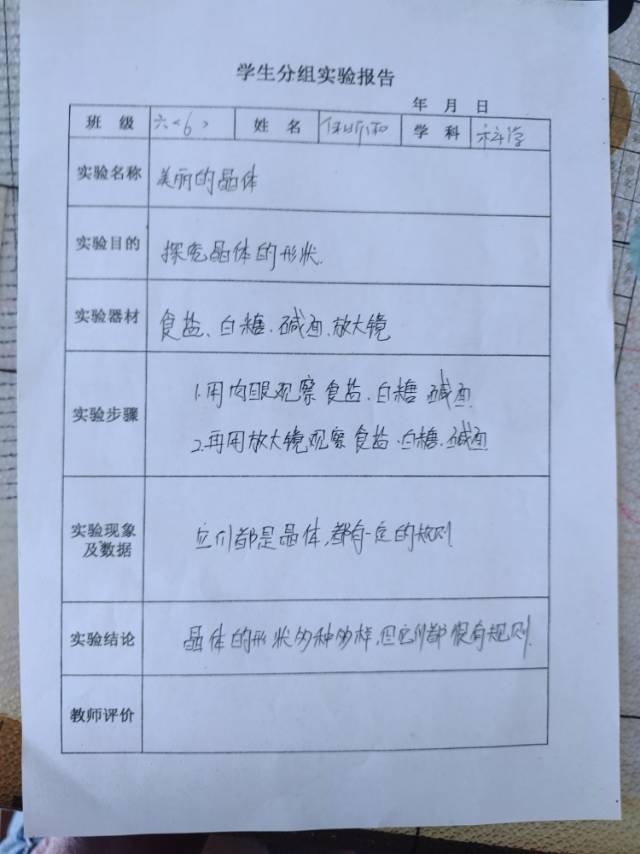 学生分组实验报告
年 月 日
班 级 六<6> 姓 名 学 科 科学
实验名称 美丽的晶体
实验目的 探究晶体的形状.
实验器材 食盐、白糖.碱面、放大镜
实验步骤 1.用肉眼观察食盐.白糖 碱面
2.再用放大镜观察食盐.白糖.碱面
实验现象及数据 它们都是晶体,都有一定的规则
实验结论 晶体的形状多种多样,但它们都很有规则.
教师评价